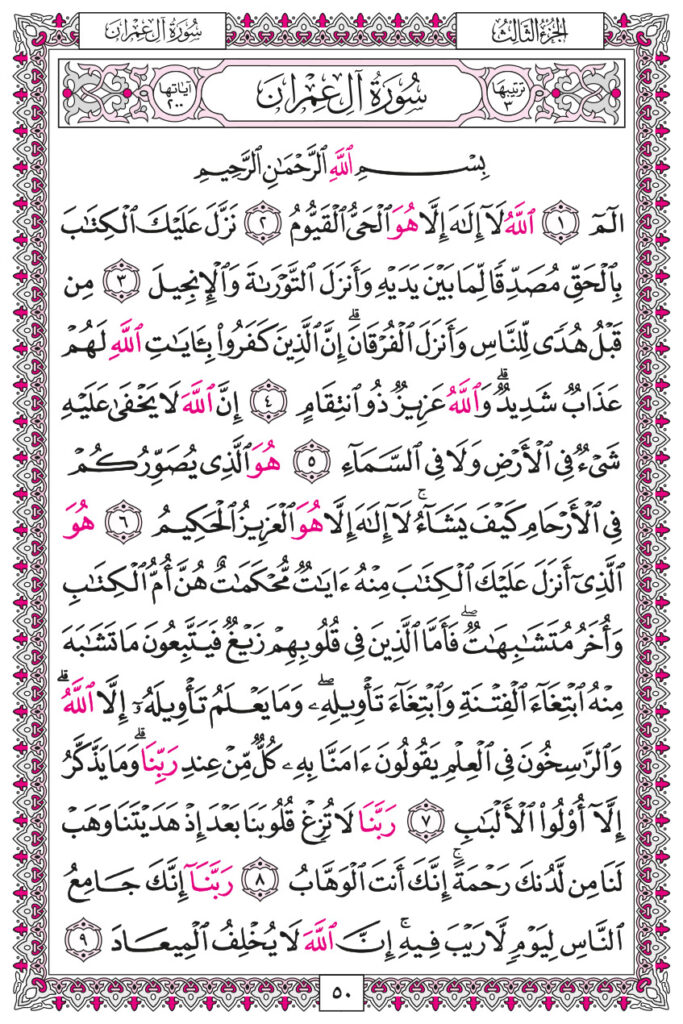 الجزء الثالث
سورة آل عمران
ترتيبها ٣
سُورَةُ آلِ عِمْرَانَ
آياتها ٢٠٠
بِسْمِ ٱللَّهِ ٱلرَّحْمَٰنِ ٱلرَّحِيمِ
الٓمٓ ١ ٱللَّهُ لَآ إِلَٰهَ إِلَّا هُوَ ٱلْحَىُّ ٱلْقَيُّومُ ٢ نَزَّلَ عَلَيْكَ ٱلْكِتَٰبَ
بِٱلْحَقِّ مُصَدِّقًا لِّمَا بَيْنَ يَدَيْهِ وَأَنزَلَ ٱلتَّوْرَىٰةَ وَٱلْإِنجِيلَ ٣ مِن
قَبْلُ هُدًى لِّلنَّاسِ وَأَنزَلَ ٱلْفُرْقَانَ ۗ إِنَّ ٱلَّذِينَ كَفَرُوا۟ بِـَٔايَٰتِ ٱللَّهِ لَهُمْ
عَذَابٌ شَدِيدٌ ۗ وَٱللَّهُ عَزِيزٌ ذُو ٱنتِقَامٍ ٤ إِنَّ ٱللَّهَ لَا يَخْفَىٰ عَلَيْهِ
شَىْءٌ فِى ٱلْأَرْضِ وَلَا فِى ٱلسَّمَآءِ ٥ هُوَ ٱلَّذِى يُصَوِّرُكُمْ
فِى ٱلْأَرْحَامِ كَيْفَ يَشَآءُ ۚ لَآ إِلَٰهَ إِلَّا هُوَ ٱلْعَزِيزُ ٱلْحَكِيمُ ٦ هُوَ
ٱلَّذِىٓ أَنزَلَ عَلَيْكَ ٱلْكِتَٰبَ مِنْهُ ءَايَٰتٌ مُّحْكَمَٰتٌ هُنَّ أُمُّ ٱلْكِتَٰبِ
وَأُخَرُ مُتَشَٰبِهَٰتٌ ۖ فَأَمَّا ٱلَّذِينَ فِى قُلُوبِهِمْ زَيْغٌ فَيَتَّبِعُونَ مَا تَشَٰبَهَ
مِنْهُ ٱبْتِغَآءَ ٱلْفِتْنَةِ وَٱبْتِغَآءَ تَأْوِيلِهِۦ ۗ وَمَا يَعْلَمُ تَأْوِيلَهُۥٓ إِلَّا ٱللَّهُ ۗ
وَٱلرَّٰسِخُونَ فِى ٱلْعِلْمِ يَقُولُونَ ءَامَنَّا بِهِۦ كُلٌّ مِّنْ عِندِ رَبِّنَا ۗ وَمَا يَذَّكَّرُ
إِلَّآ أُو۟لُوا۟ ٱلْأَلْبَٰبِ ٧ رَبَّنَا لَا تُزِغْ قُلُوبَنَا بَعْدَ إِذْ هَدَيْتَنَا وَهَبْ
لَنَا مِن لَّدُنكَ رَحْمَةً ۚ إِنَّكَ أَنتَ ٱلْوَهَّابُ ٨ رَبَّنَآ إِنَّكَ جَامِعُ
ٱلنَّاسِ لِيَوْمٍ لَّا رَيْبَ فِيهِ ۚ إِنَّ ٱللَّهَ لَا يُخْلِفُ ٱلْمِيعَادَ ٩
٥٠